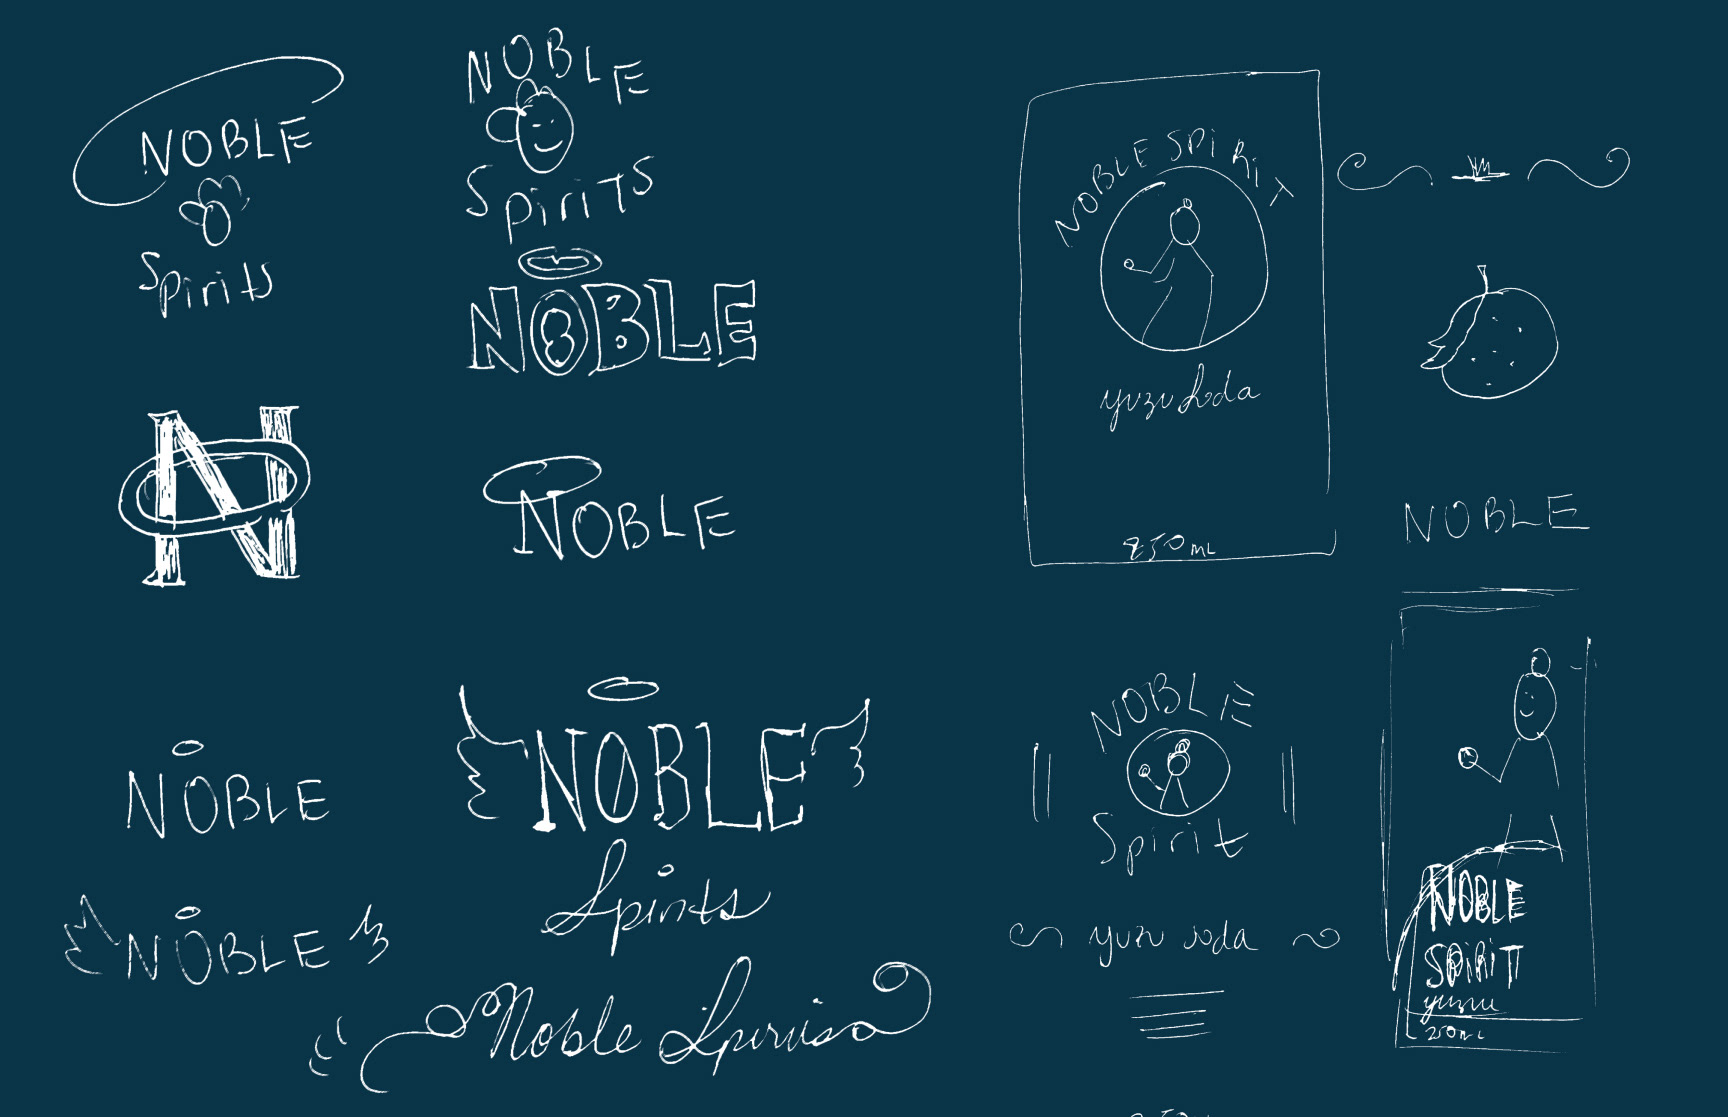 NOBLE
Spirits
NOBLE
Spirits
NOBLE
N
NOBLE
NOBLE
NOBLE
NOBLE
Spirits
Noble Spirits
NOBLE SPIRIT
yuzu soda
250 ML
NOBLE
NOBLE
Spirit
yuzu soda
NOBLE
SPIRIT
yuzu
250 ML